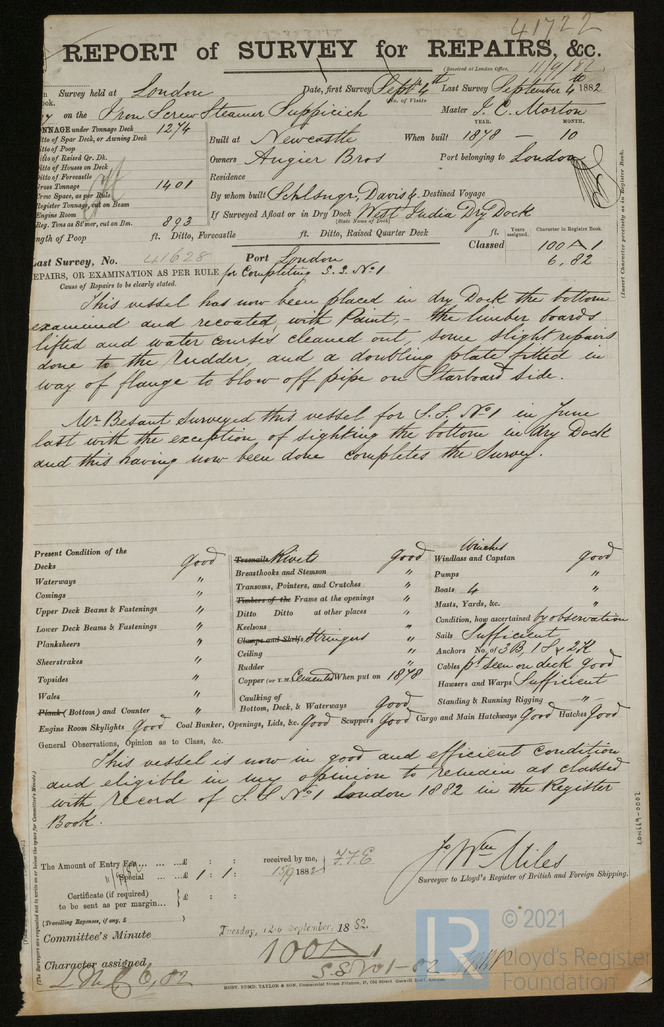 41722
REPORT of SURVEY for REPAIRS, &c.
(Received at London Office, 11/9/82
Survey held at London Date, first Survey Sept 4th Last Survey September 4th 1882
No. of Visits
on the Iron Screw Steamer Suppicich Master J. C. Morton
TONNAGE under Tonnage Deck 1274
Ditto of Spar Deck, or Awning Deck
Ditto of Poop
Ditto of Raised Qr. Dk.
Ditto of Houses on Deck
Ditto of Forecastle
Gross Tonnage 1401
Crew Space, as per Rule
Register Tonnage, cut on Beam
Engine Room
Reg. Tons as St'mer, cut on Bm. 893
YEAR. MONTH.
Built at Newcastle When built 1878 – 10
Owners Angier Bros Port belonging to London
Residence
By whom built Schlsngr, Davis & Destined Voyage
If Surveyed Afloat or in Dry Dock West India Dry Dock
(State Name of Dock.)
Length of Poop ft. Ditto, Forecastle ft. Ditto, Raised Quarter Deck ft.
Years assigned. Character in Register Book.
Classed 100 A 1
6,82
(Insert Character precisely as in Register Book.)
Last Survey, No. 41628 Port London
REPAIRS, OR EXAMINATION AS PER RULE for Completing S.S. No 1
Cause of Repairs to be clearly stated.
This vessel has now been placed in dry Dock the bottom
examined and recoated with Paint,- the limber boards
lifted and water courses cleaned out, some slight repairs
done to the rudder, and a doubling plate fitted in
way of flange to blow off pipe on Starboard side.
Mr Besant surveyed this vessel for S.S. No 1 in June
last with the exception of sighting the bottom in dry Dock
and this having now been done completes the Survey.
Present Condition of the
Decks good
Waterways "
Comings "
Upper Deck Beams & Fastenings "
Lower Deck Beams & Fastenings "
Planksheers "
Sheerstrakes "
Topsides "
Wales "
Plank (Bottom) and Counter "
Treenails Rivets good
Breasthooks and Stemson "
Transoms, Pointers, and Crutches "
Timbers of the Frame at the openings "
Ditto Ditto at other places "
Keelsons "
Clamps and Shelfs Stringers "
Ceiling "
Rudder "
Copper (or Y.M. Cemented When put on 1878
Caulking of
Bottom, Deck, & Waterways Good
Winches
Windlass and Capstan good
Pumps "
Boats 4 "
Masts, Yards, &c. "
Condition, how ascertained by observation
Sails Sufficient
Anchors No. of 3B, 1S & 2K
Cables pt seen on deck good
Hawsers and Warps Sufficient
Standing & Running Rigging "
Engine Room Skylights Good Coal Bunker, Openings, Lids, &c. Good Scuppers Good Cargo and Main Hatchways Good Hatches Good
General Observations, Opinion as to Class, &c.
This vessel is now in good and efficient condition
and eligible in my opinion to remain as classed
with record of S.S. No 1 London 1882 in the Register
Book.
The Amount of Entry Fee £ : : received by me, F.F.E
Special £ 1 : 1 : 15/9 1882
Certificate (if required)
to be sent as per margin £ : :
(Travelling Expenses, if any, £
Jo Wm Miles
Surveyor to Lloyd's Register of British and Foreign Shipping.
Committee's Minute Tuesday, 12th September, 1882.
Character assigned 100 A 1
S.S. No 1-82
LON669-0002
HOBY, EDMD. TAYLOR & SON, Commercial Steam Printers
© 2021
Lloyd's Register
Foundation